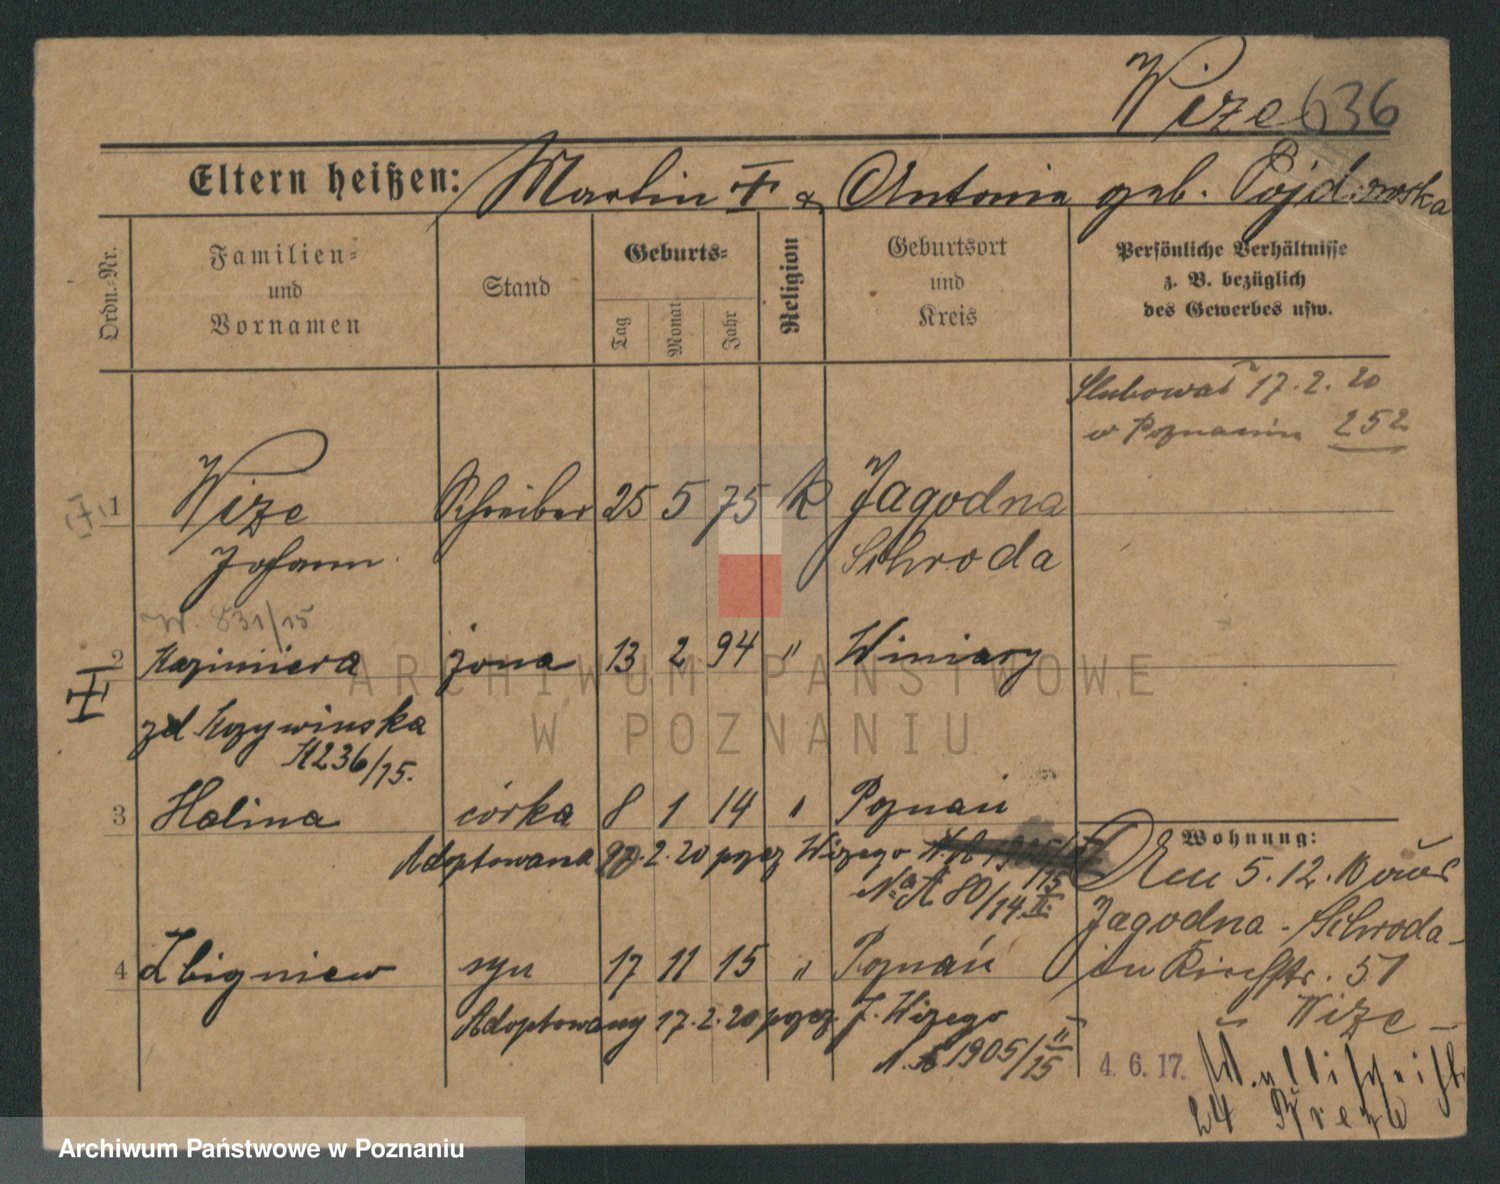 Wize 636
Eltern heißen: Martin † & Antonia geb. Pojdowska
Ordn.-Nr.
Familien-
und
Vornamen
Stand
Geburts-
Tag
Monat
Jahr
Religion
Geburtsort
und
Kreis
Persönliche Verhältnisse
z. B. bezüglich
des Gewerbes usw.
Ślubował 17.2.20
w Poznaniu 252
1 Wize Schreiber 25 5 75 k Jagodna
Johann Schroda
W. 831/15
2 Kazimiera żona 13 2 94 " Winiary
zd Krzywinska
K236/15.
3 Halina córka 8 1 14 " Poznań
Adoptowana 17.2.20 przez Wizego
No A 80/14 II.
Wohnung:
Den 5.12.10 aus
Jagodna - Schroda -
in Kirchstr. 51
4 Zbigniew syn 17 11 15 " Poznań
Adoptowany 17.2.20 przez J. Wizego
N. A 1905/15 II
Wize
4.6.17. Wallischeibr
24 Breze
ARCHIWUM PAŃSTWOWE
W POZNANIU
Archiwum Państwowe w Poznaniu